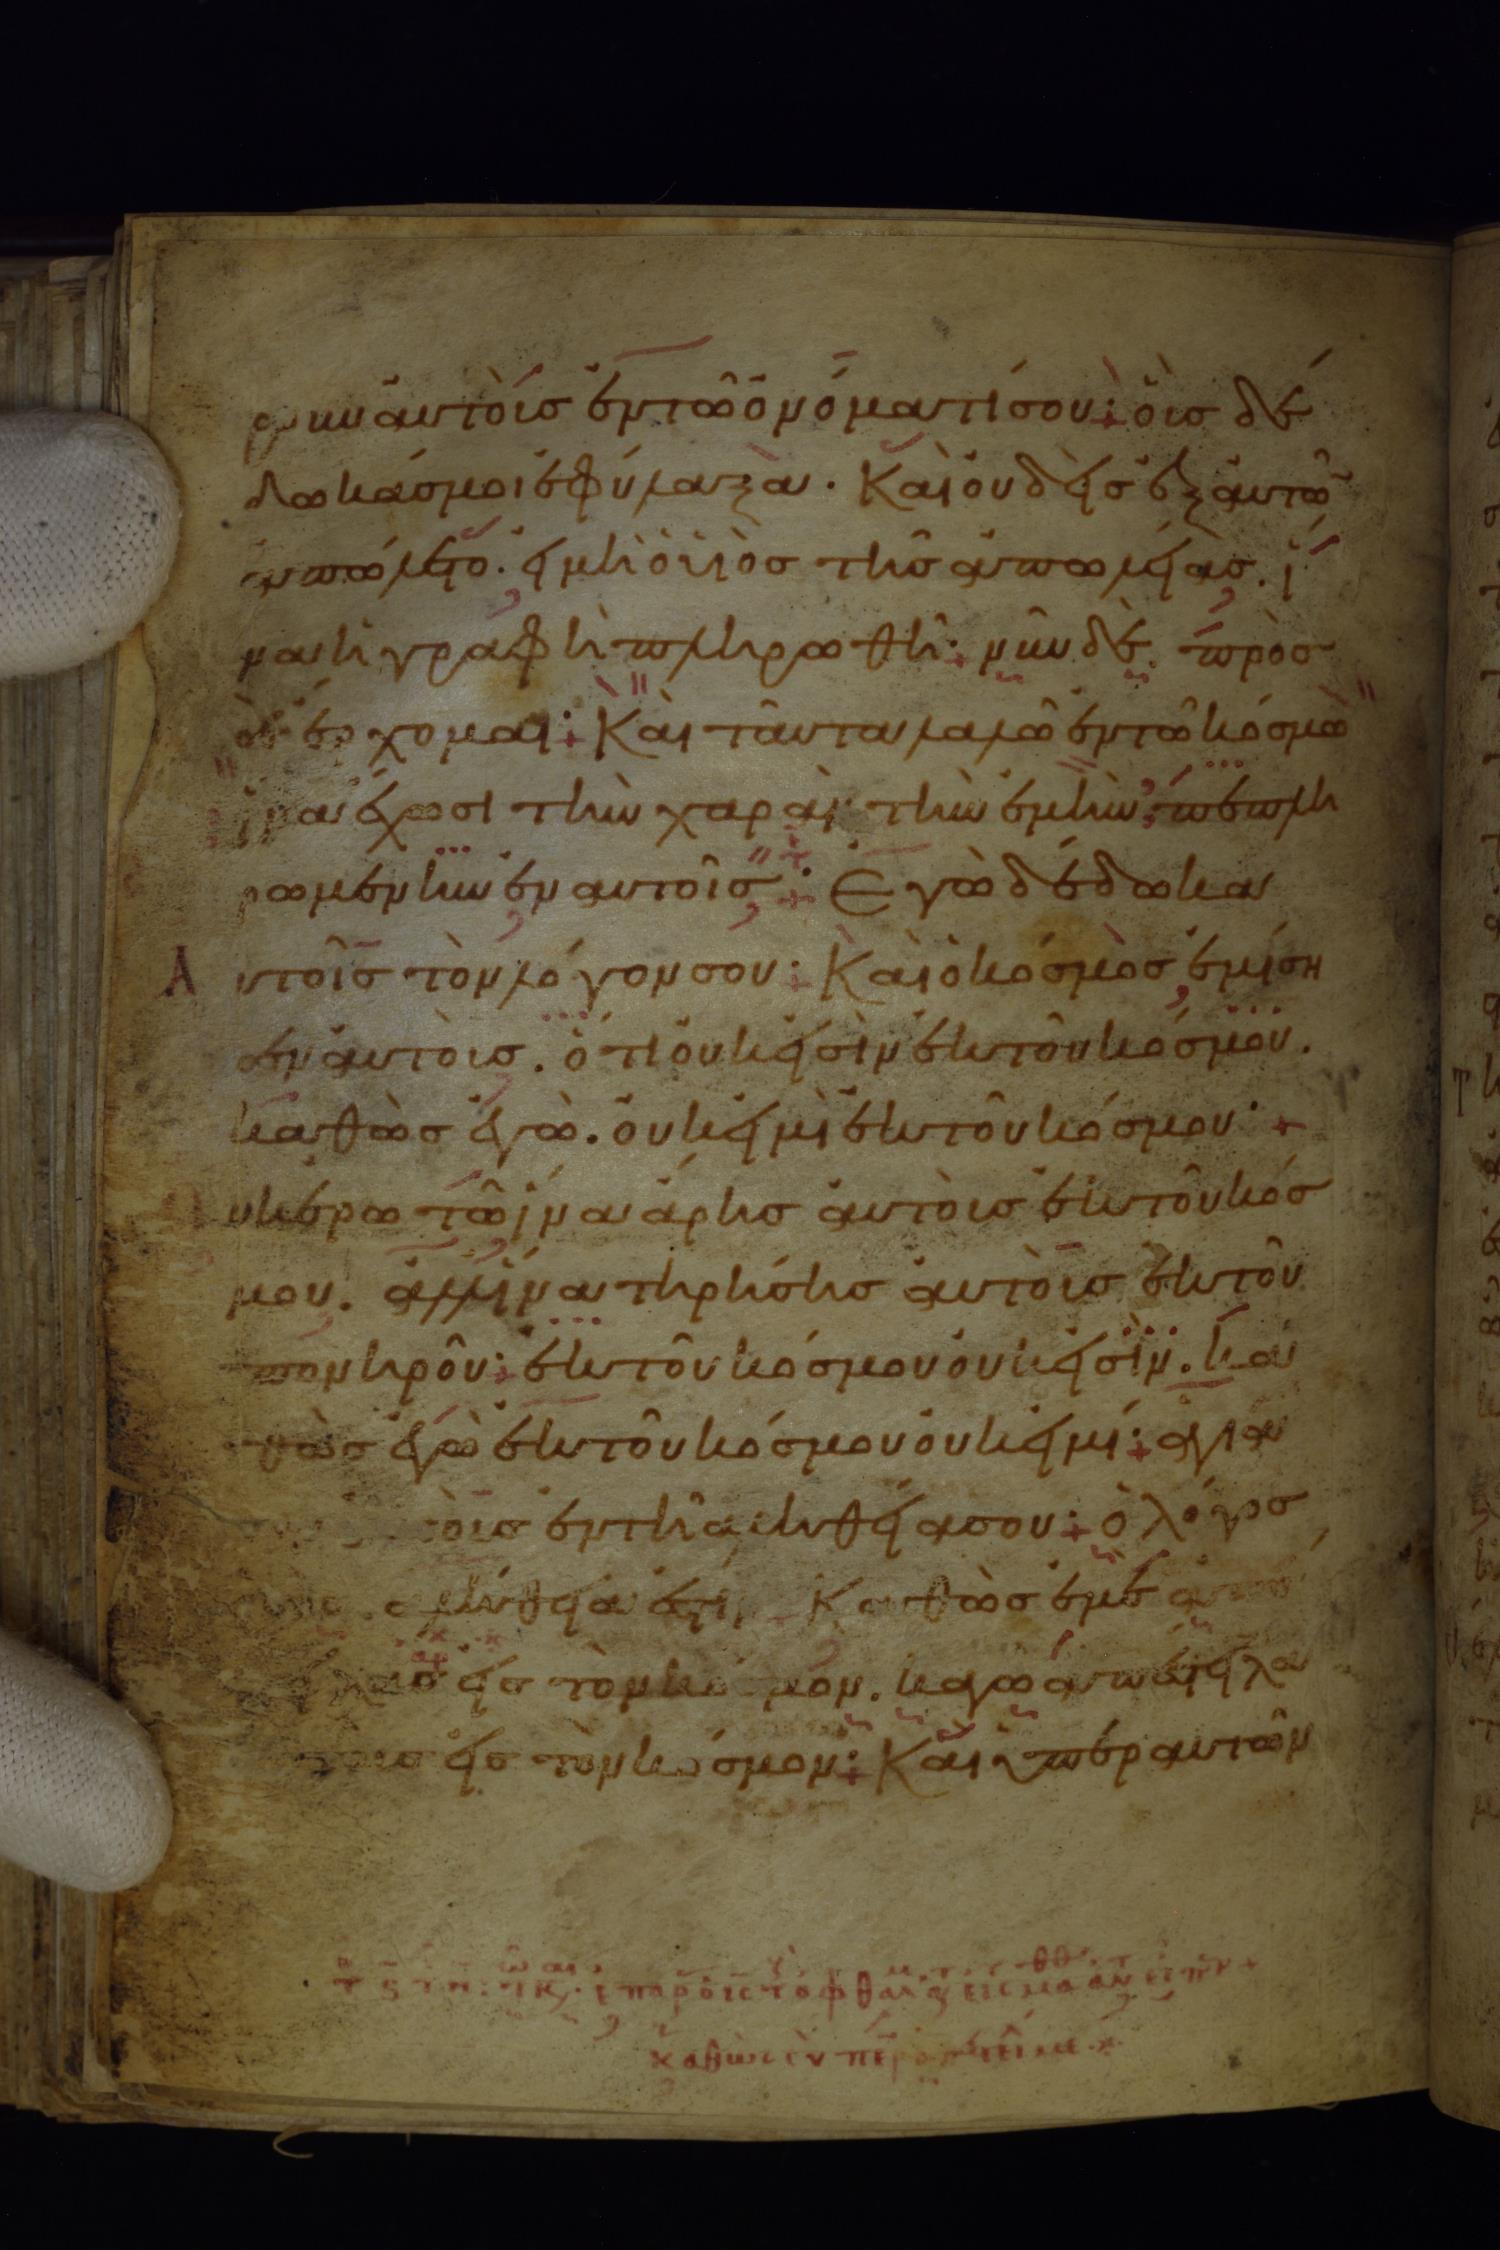 ρουν αὐτοὺς ἐν τῶ ὀνόματί σου· οὓς δέ
δωκάς μοι ἐφύλαξα. Καὶ οὐδεὶς ἐξ αὐτῶ
ἀπώλετο. εἰ μὴ ὁ υἱὸς τῆς ἀπωλείας. ἵ
να ἡ γραφὴ πληρωθῆ· νῦν δὲ πρὸς
σὲ ἔρχομαι· Καὶ ταῦτα λαλῶ ἐν τῶ κόσμω
ἵνα ἔχωσι τὴν χαρὰν τὴν ἐμὴν πεπλη
ρωμένην ἐν αὐτοῖς· Ἐγὼ δέδωκα
Α υτοῖς τὸν λόγον σου· Καὶ ὁ κόσμος ἐμίση
σεν αὐτοὺς. ὅτι οὐκ εἰσὶν ἐκ τοῦ κόσμου.
καθὼς ἐγὼ. οὐκ εἰμὶ ἐκ τοῦ κόσμου·
Ο υκ ἐρωτῶ ἵνα ἄρης αὐτοὺς ἐκ τοῦ κόσ
μου. ἀλλ' ἵνα τηρήσης αὐτοὺς ἐκ τοῦ
πονηροῦ· ἐκ τοῦ κόσμου οὐκ εἰσὶν. κα
θὼς ἐγὼ ἐκ τοῦ κόσμου οὐκ εἰμί· ἁγία
τοὺς ἐν τῆ ἀληθεία σου· ὁ λόγος
ἀλήθεια ἐστι. Καθὼς ἐμὲ
εἰς τὸν κόσμον. καγὼ ἀπέστειλα
τοὺς εἰς τὸν κόσμον· Καὶ ὑπὲρ αὐτῶν